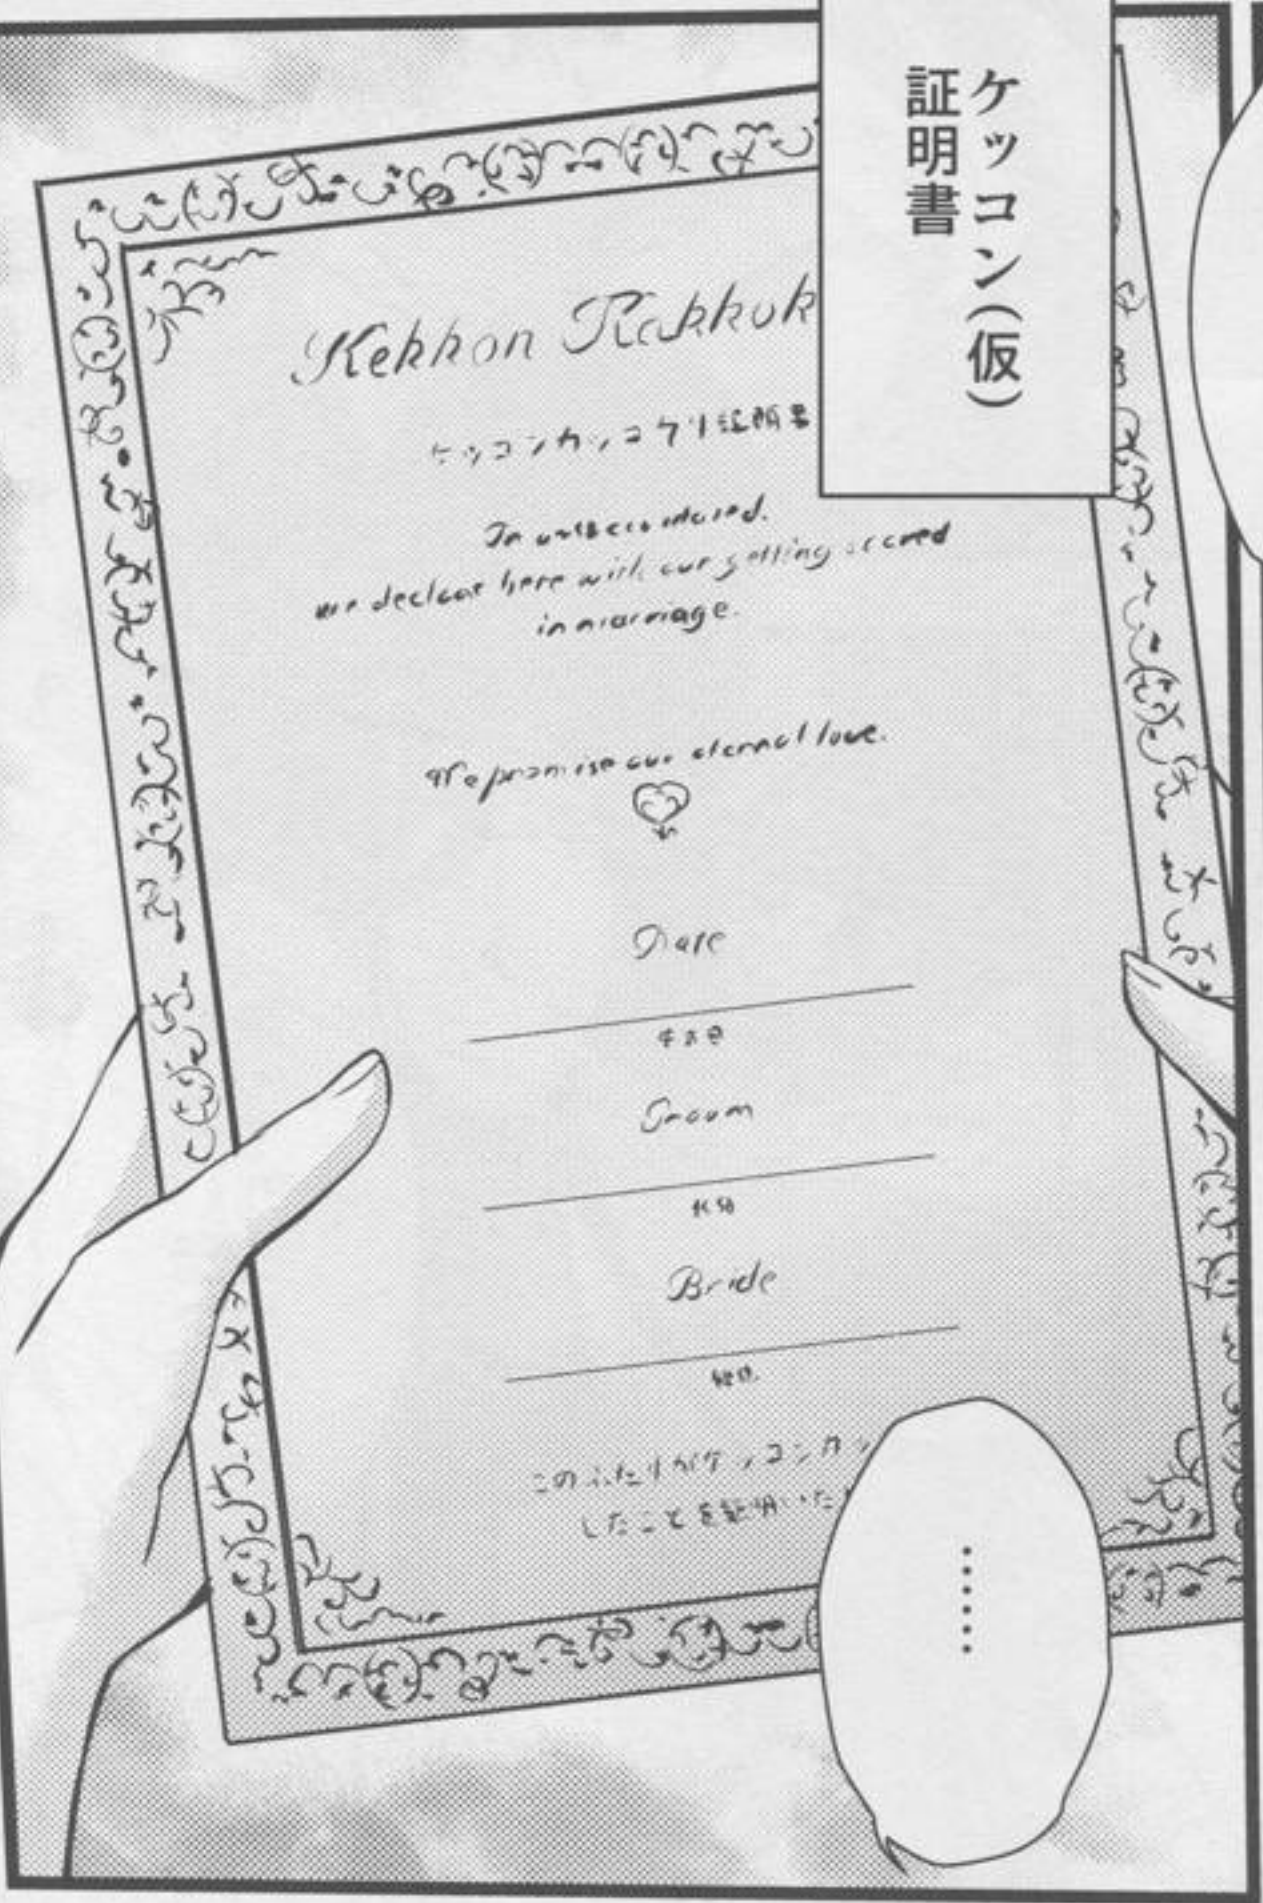 ケッコン(仮)
証明書
Kekkon Kakkok
ケッコンカッコカリ証明書
we declear here with our getting
in marriage.
We promise our eternal love.
Date
Groom
Bride
このふたりがケッコンカッ
したことを証明いた
……